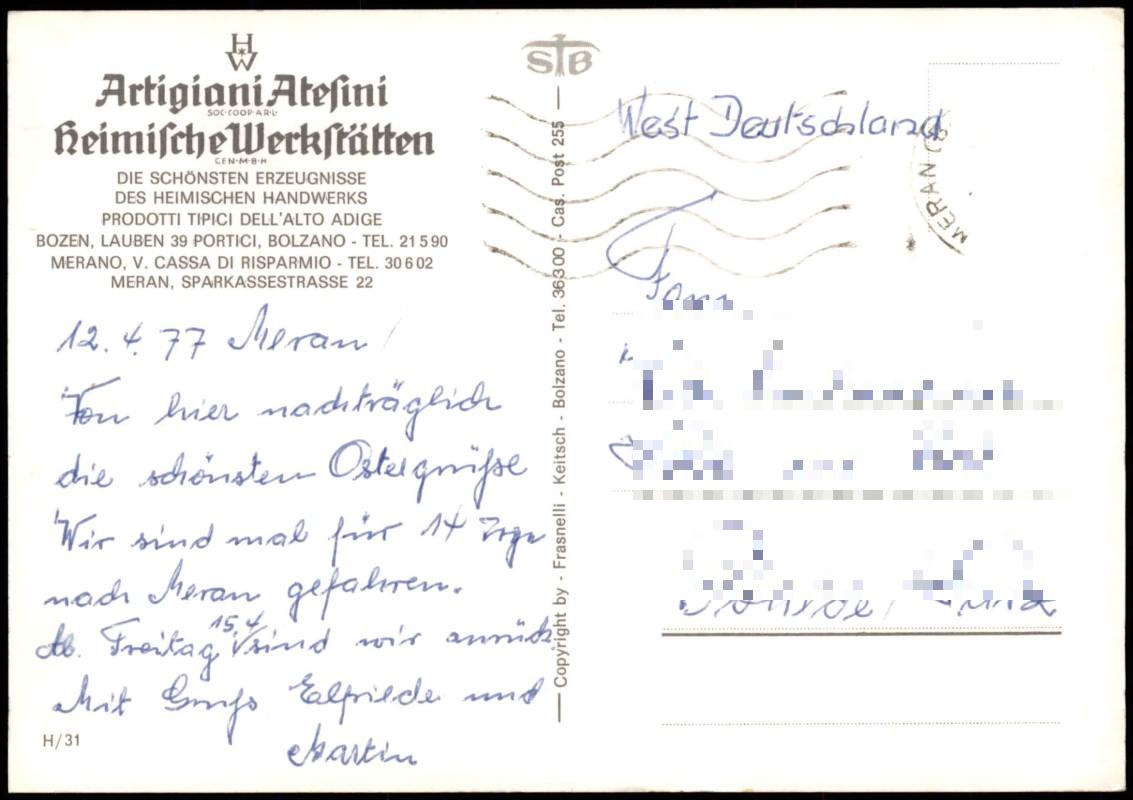 HW
Artigiani Atesini
SOC·COOP·A·R·L·
Heimische Werkstätten
GEN·M·B·H
DIE SCHÖNSTEN ERZEUGNISSE
DES HEIMISCHEN HANDWERKS
PRODOTTI TIPICI DELL'ALTO ADIGE
BOZEN, LAUBEN 39 PORTICI, BOLZANO - TEL. 21590
MERANO, V. CASSA DI RISPARMIO - TEL. 30602
MERAN, SPARKASSESTRASSE 22
12.4.77 Meran
Von hier nachträglich
die schönsten Ostergrüße
Wir sind mal für 14 Tage
nach Meran gefahren.
Ab. Freitag 15.4 sind wir zurück.
Mit Gruß Elfriede und
Martin
H/31
STB
Copyright by - Frasnelli - Keitsch - Bolzano - Tel. 36300 - Cas. Post 255
West Deutschland
MERAN